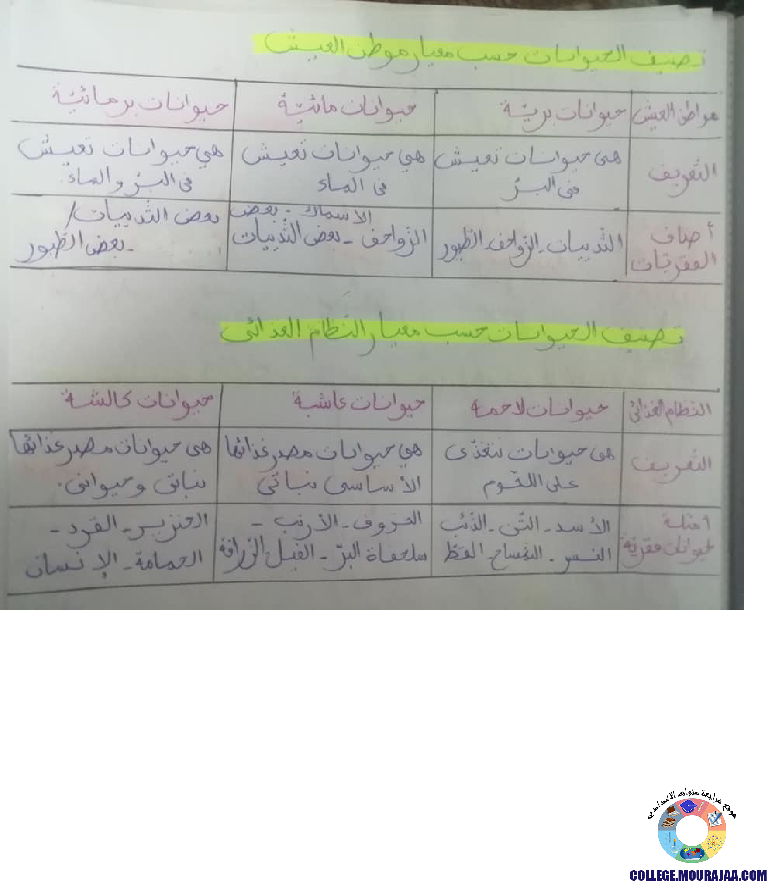 تصنيف الحيوانات حسب معيار موطن العيش
مواطن العيش حيوانات بريّة حيوانات مائيّة حيوانات برمائيّة
التعريف هي حيوانات تعيش في البرّ هي حيوانات تعيش في الماء هي حيوانات تعيش في البرّ والماء
أصناف الفقريات الثدييات - الزواحف الطيور الأسماك - بعض الزواحف - بعض الثدييات بعض الثدييات / - بعض الطيور
تصنيف الحيوانات حسب معيار النظام الغذائي
النظام الغذائي حيوانات لاحمة حيوانات عاشبة حيوانات كالشة
التعريف هي حيوانات تتغذى على اللحوم هي حيوانات مصدر غذائها الأساسي نباتي هي حيوانات مصدر غذائها نباتي وحيواني.
أمثلة لحيوانات فقرية الأسد - - الذئب النسر - التمساح القط الخروف - الأرنب - سلحفاة البرّ - الفيل الزرافة الخنزير - القرد - الحمامة - الإنسان
موقع مراجعة
COLLEGE.MOURAJAA.COM